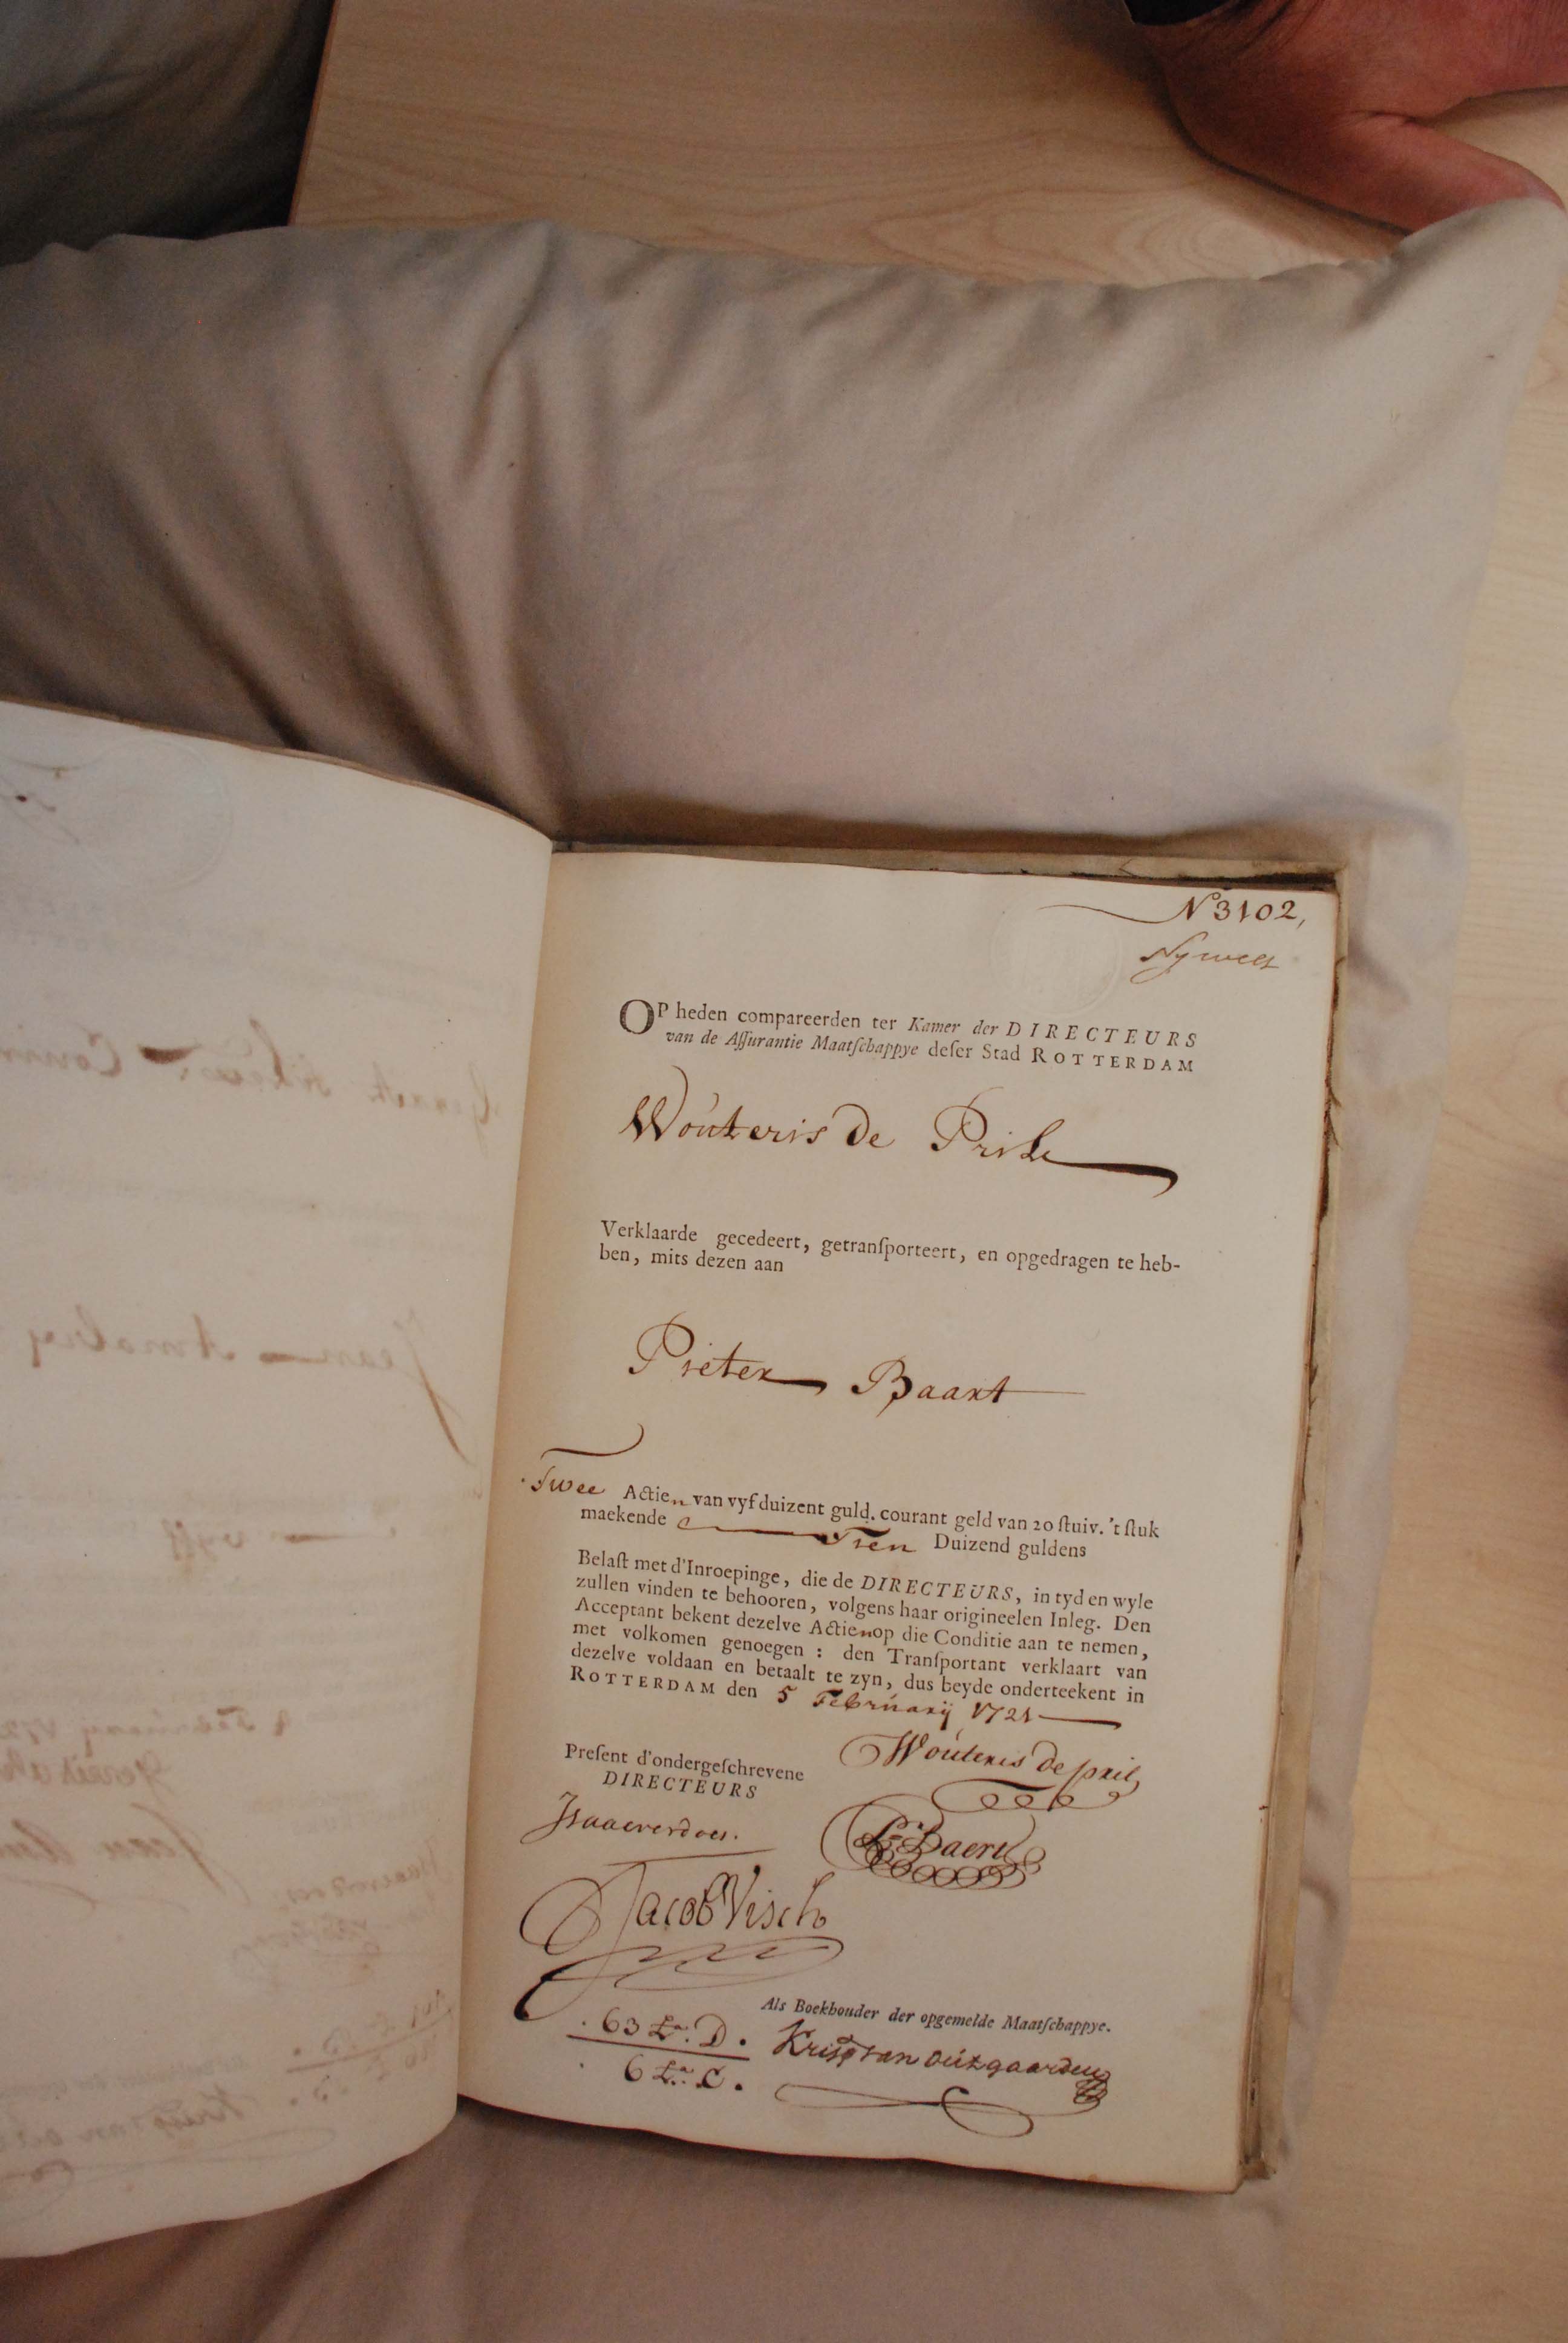 N 3102,
Nijwelt
OP heden compareerden ter Kamer der DIRECTEURS
van de Aſſurantie Maatſchappye deſer Stad ROTTERDAM
Wouteris De Prile
Verklaarde gecedeert, getranſporteert, en opgedragen te heb-
ben, mits dezen aan
Pieter Baart
Twee Actien van vyfduizent guld. courant geld van 20 ſtuiv. 't ſtuk
maekende Tien Duizend guldens
Belaſt met d'Inroepinge, die de DIRECTEURS, in tyd en wyle
zullen vinden te behooren, volgens haar origineelen Inleg. Den
Acceptant bekent dezelve Actien op die Conditie aan te nemen,
met volkomen genoegen : den Tranſportant verklaart van
dezelve voldaan en betaalt te zyn, dus beyde onderteekent in
ROTTERDAM den 5 Februarij 1721
Wouteris De pril
Preſent d'ondergeſchrevene
DIRECTEURS
Pr Baert
Jacob Visch
Als Boekhouder der opgemelde Maatſchappye.
63 La. D.
Kris van Outgaarden
6 La. C.